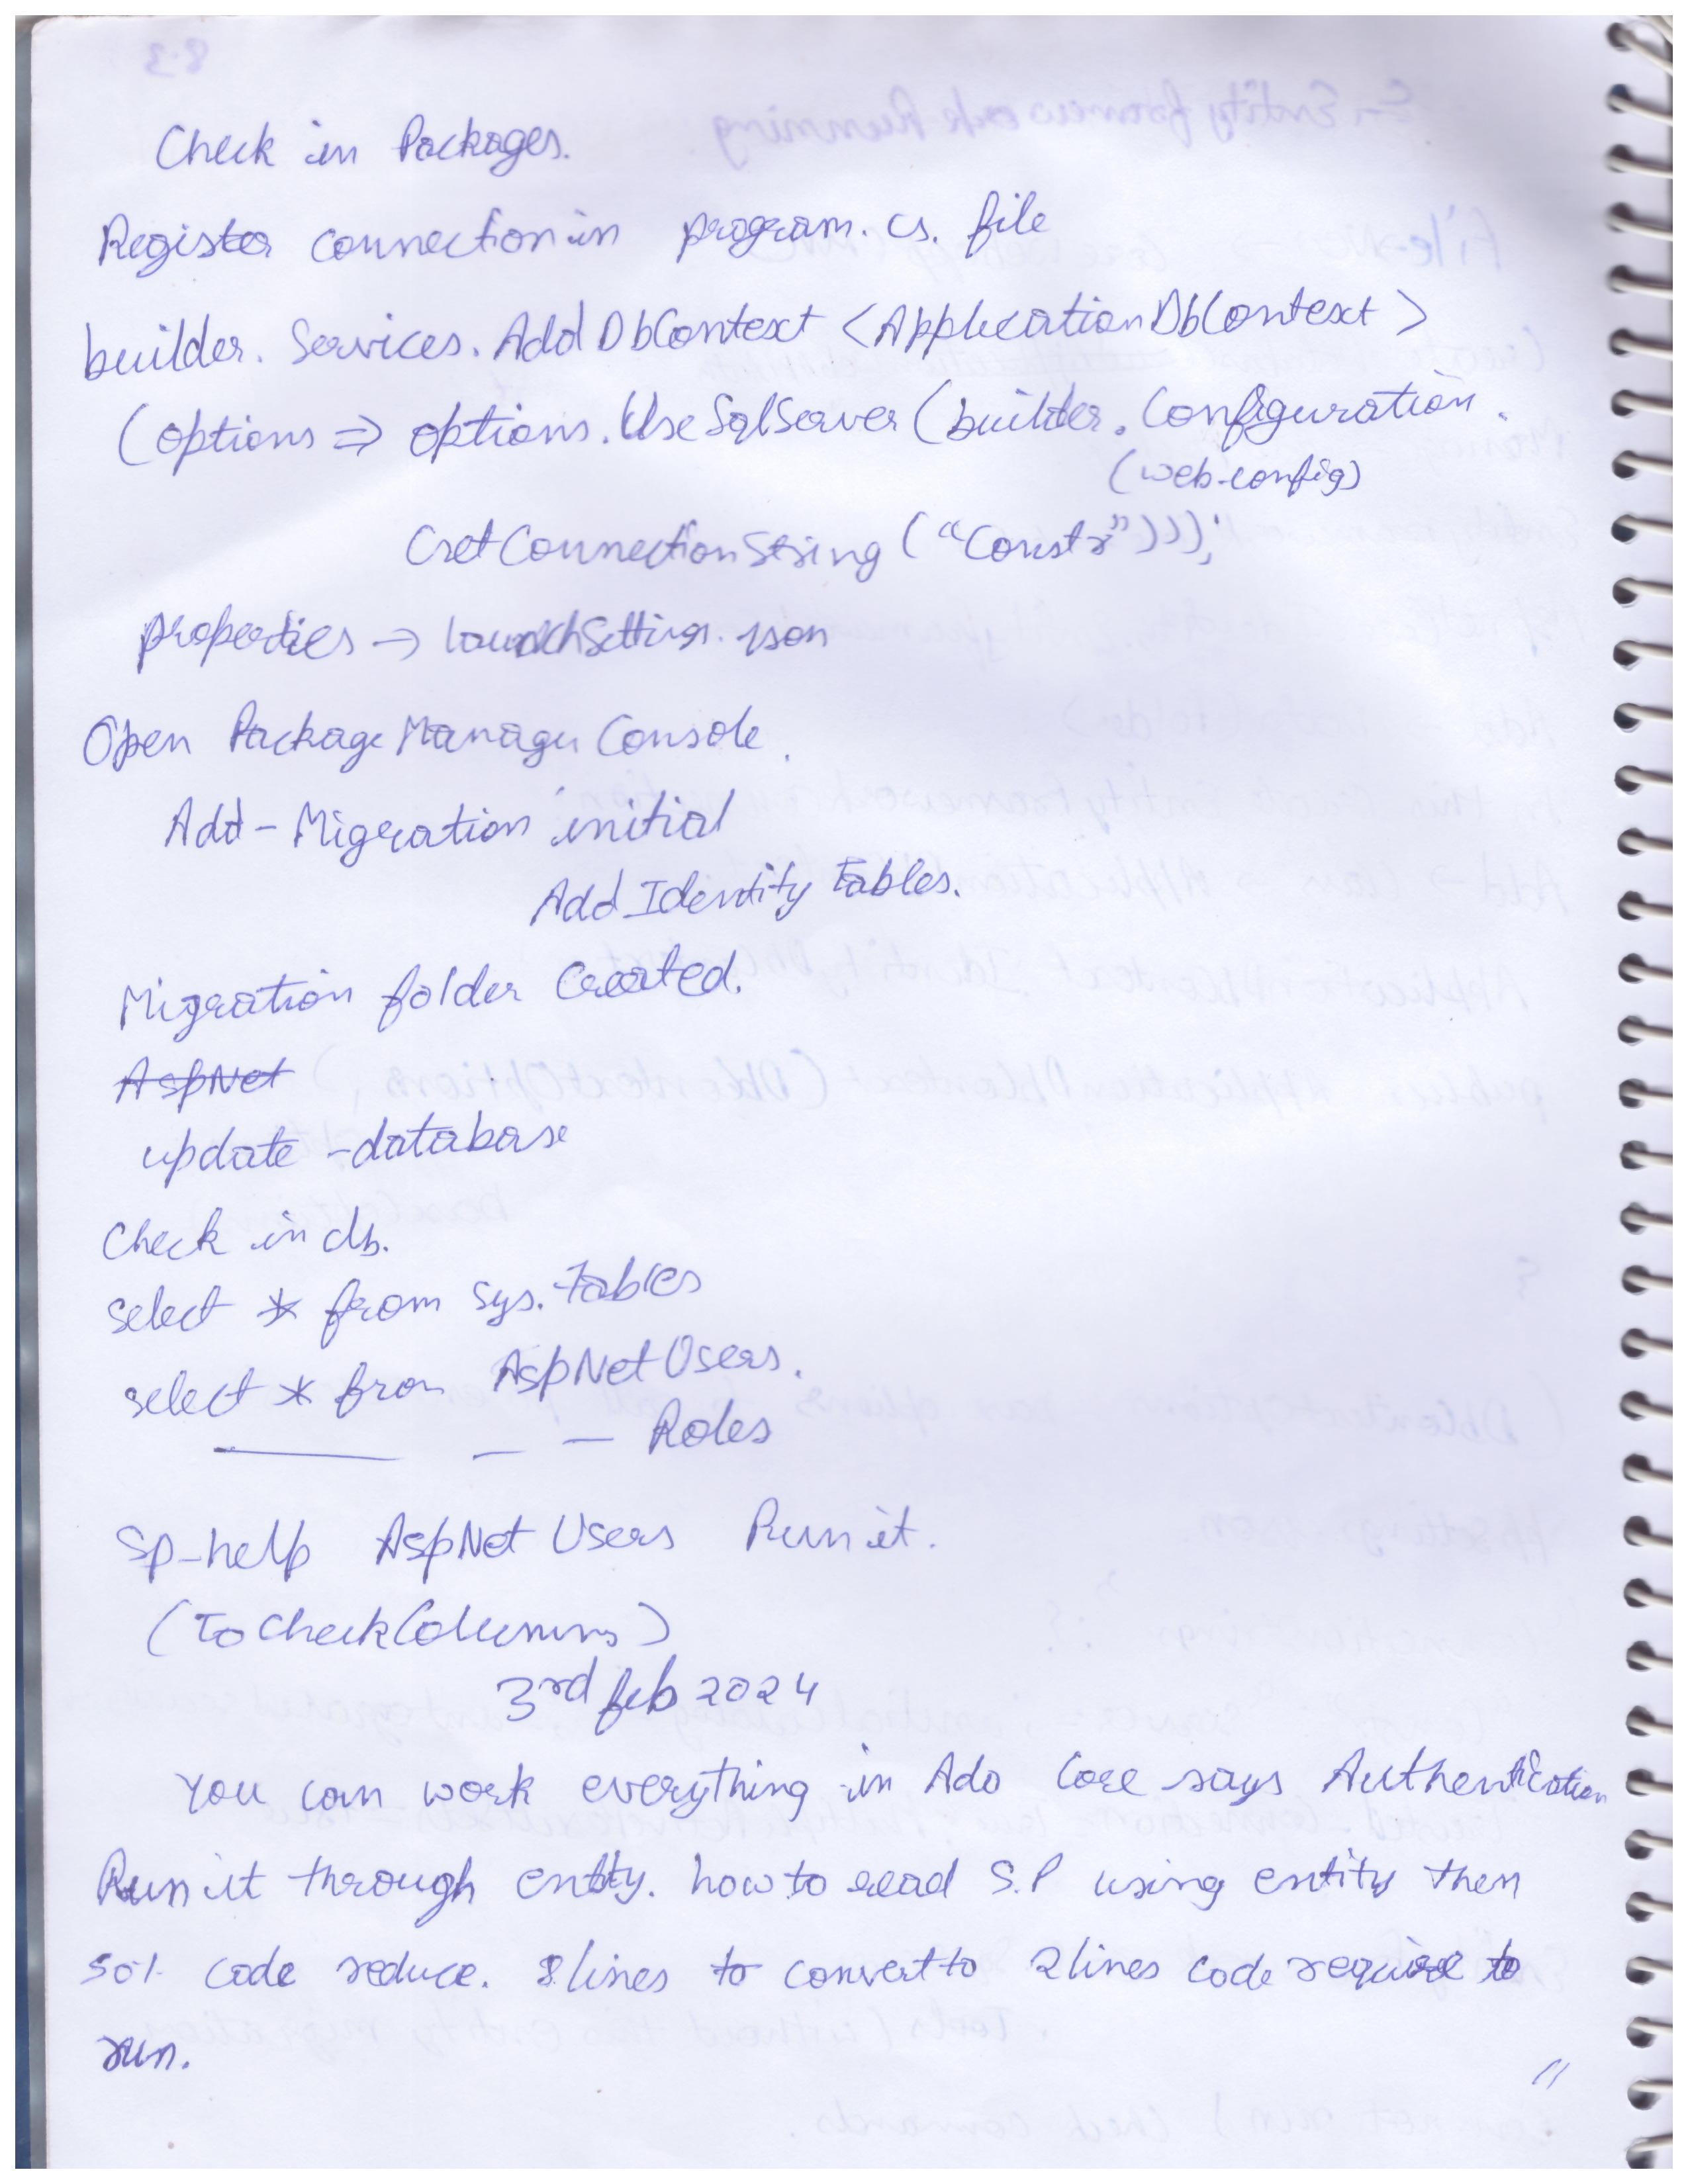 Check in Packages.
Register connection in program. cs. file
builder. Services. Add DbContext <ApplicationDbContext>
(options => options. Use SqlServer (builder. Configuration.
(web-config)
GetConnectionString ("Constr")));
properties → launchSettings. json
Open Package Manager Console.
Add - Migration initial
Add Identity Tables.
Migration folder Created.
AspNet
update - database
Check in db.
select * from sys. Tables
select * from AspNetUsers.
— — — Roles
Sp-help AspNet Users Run it.
(To Check Columns)
3rd feb 2024
You can work everything in Ado Core says Authentication
Run it through entity. how to read S.P using entity then
50% code reduce. 8 lines to convert to 2 lines code require to
run.
11